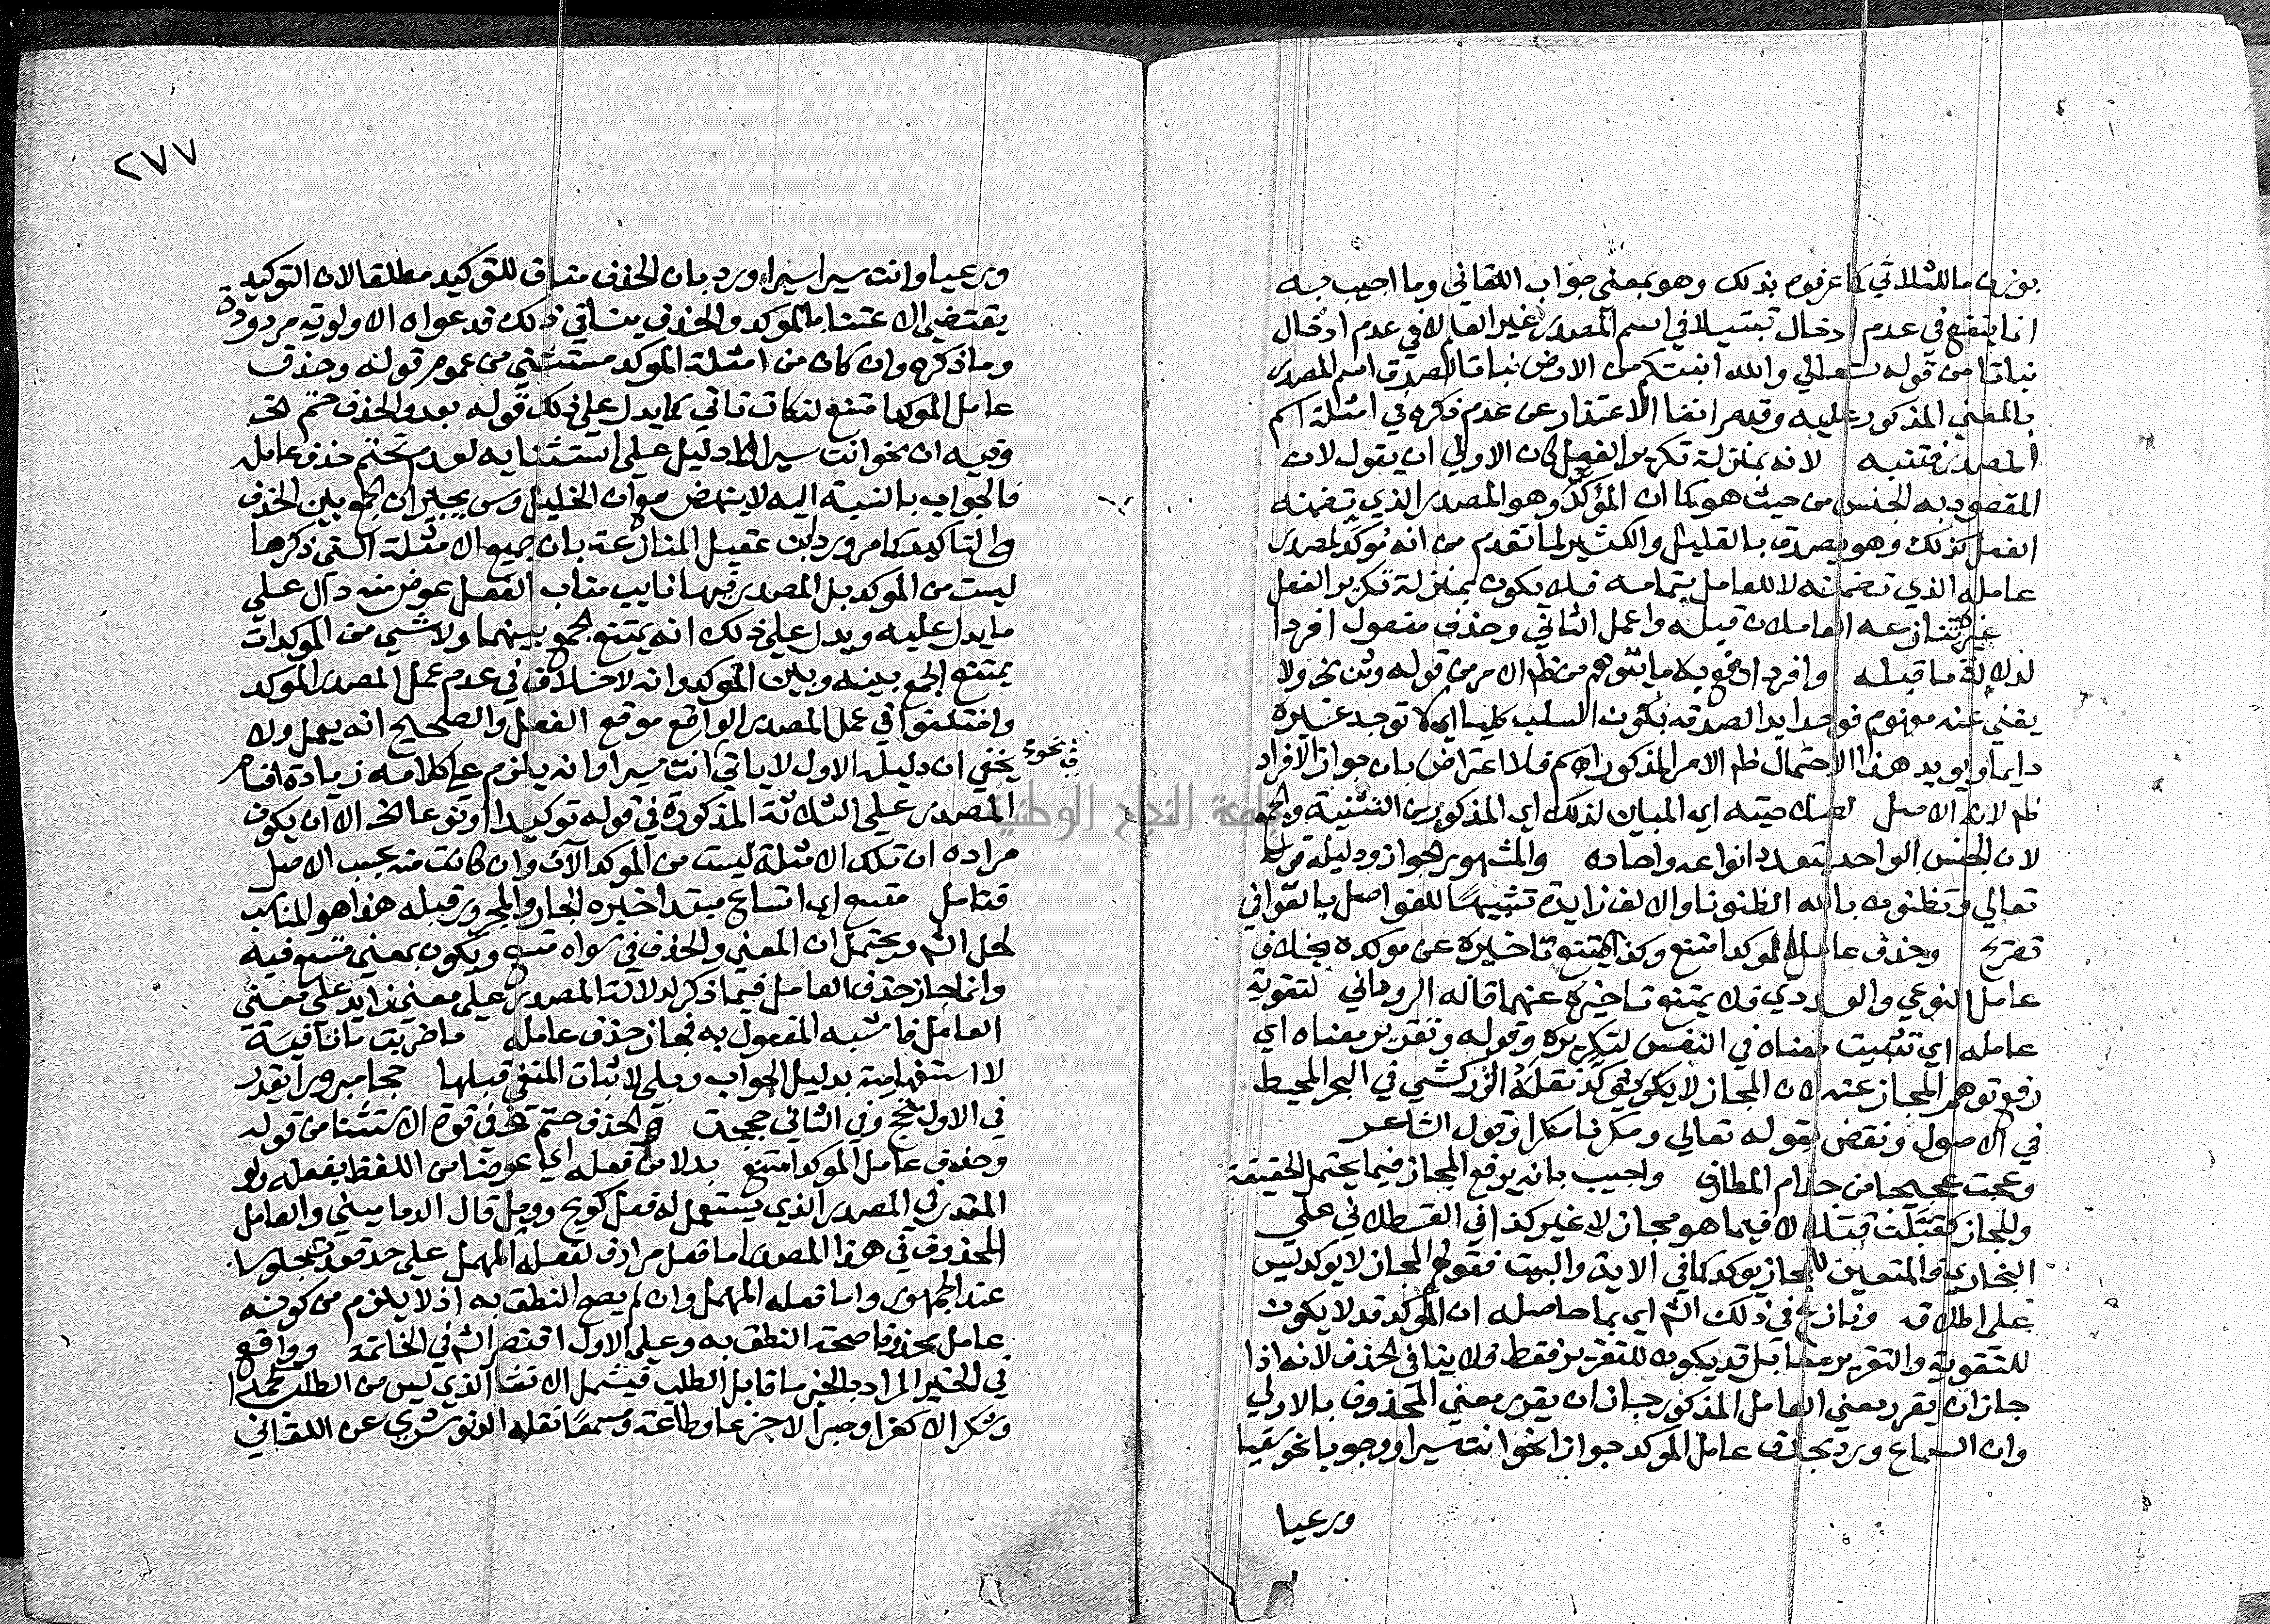 بوزن ما للثلاثي كما عرفوه بذلك وهو بمعنى جواب اللقاني وما اجيب به
انما ينفع في عدم ادخال تبتيلا في اسم المصدر غير العلم لا في عدم ادخال
نباتا من قوله تعالي والله انبتكم من الارض نباتا لصدق اسم المصدر
بالمعني المذكور عليه وقد مر انفا الاعتذار عن عدم ذكره في امثلة اسم
المصدر فتنبه لانه بمنزلة تكرير الفعل كان الاولي ان يقول لان
المقصود به الجنس من حيث هو كما ان المؤكد وهو المصدر الذي تضمنه
الفعل كذلك وهو يصدق بالقليل والكثير لما تقدم من انه مؤكد لمصدر
عامله الذي تضمنه لا للعامل بتمامه فلا يكون بمنزلة تكرير الفعل
غيره تنازعه العاملان قبله واعمل الثاني وحذف مفعول افردا
لدلالة ما قبله وافردا دفع به ما يتوهم من ظم الامر من قوله وثن نحو ولا
يغني عنه مفهوم فوحد ابدا لصدقه بكون السلب كليا اي لا توحد غيره
دايما ويويد هذا الاحتمال ظم الامر المذكور اهم فلا اعتراض بان جواز الافراد
ظم لانه الاصل لصلاحيته اي المباين لذلك اي المذكور من التثنية والجمع
لان الجنس الواحد لتعدد انواعه واحاده والمشهور الجواز ودليله قوله
تعالي وتظنون بالله الظنونا والالف زايدة تشبيها للفواصل بالقوافي
تصريح وحذف عامل الموكد امتنع وكذا يمتنع تاخيره عن موكده بخلاف
عامل النوعي والعددي فلا يمتنع تاخيره عنهما قاله الروداني لتقوية
عامله اي تثبيت معناه في النفس لتكريره وقوله وتقرير معناه اي
رفع توهم المجاز عنه لان المجاز لا يكون يوكد نقله الزركشي في البحر المحيط
في الاصول ونقض بقوله تعالي ومكرنا مكرا وقول الشاعر
وعجت عجيجا من جذام المطارف واجيب بانه يرفع المجاز فيما يحتمل الحقيقة
والمجاز كقتلت قتلا لا فيما هو مجاز لا غير كذا في القسطلاني علي
البخاري والمتعين للمجاز يوكد كما في الاية والبيت فقولهم المجاز لا يوكد ليس
علي اطلاقه ونازع في ذلك الشم اي بما حاصله ان الموكد قد لا يكون
للتقوية والتقرير معا بل قد يكون للتقرير فقط ولا ينافي الحذف لانه اذا
جاز ان يقرر معني العامل المذكور جاز ان يقرر معني المحذوف بالاولي
وان السماع ورد بحذف عامل الموكد جوازا نحو انت سيرا ووجوبا نحو سقيا
ورعيا
٢٧٧
ورعيا وانت سيرا سيرا ورد بان الحذف مناف للتوكيد مطلقا لان التوكيد
يقتضي الاعتنا بالموكد والحذف ينافي ذلك فدعواه الاولوية مردودة
وما ذكره وان كان من امثلة الموكد مستثني من عموم قوله وحذف
عامل الموكد امتنع لنكات تاتي كما يدل علي ذلك قوله بعد والحذف حتم الخ
وفيه ان نحو انت سيرا لا دليل علي استثنايه لعدم تحتم حذف عامله
فالجواب بالنسبة اليه لا ينهض مع ان الخليل وس يجيزان الجمع بين الحذف
والتاكيد كما مر ورد ابن عقيل المنازعة بان جميع الامثلة التي ذكرها
ليست من الموكد بل المصدر فيها نايب مناب الفعل عوض منه دال علي
ما يدل عليه ويدل علي ذلك انه يمتنع الجمع بينهما ولا شي من الموكدات
يمتنع الجمع بينه وبين الموكد وانه لا خلاف في عدم عمل المصدر الموكد
واختلفوا في عمل المصدر الواقع موقع الفعل والصحيح انه يعمل ولا
يخفي ان دليله الاول لا ياتي في نحو انت سيرا وانه يلزم علي كلامه زيادة اقسام
المصدر علي الثلاثة المذكورة في قوله توكيدا او نوعا الخ الا ان يكون
مراده ان تلك الامثلة ليست من الموكد الان وان كانت منه بحسب الاصل
فتامل متسع اي اتساع مبتدا خبره الجار والمجرور قبله هذا هو المناسب
لحل الشم ويحتمل ان المعني والحذف في سواه متسع ويكون بمعني متسع فيه
وانما جاز حذف العامل فيما ذكر لدلالة المصدر علي معني زايد علي معني
العامل فاشبه المفعول به فجاز حذف عامله ما ضربت ما نافية
لا استفهامية بدليل الجواب وبلي لاثبات المنفي قبلها حجا مبرورا يقدر
في الاول تحج وفي الثاني حججت والحذف حتم الخ في قوة الاستثنا من قوله
وحذف عامل الموكد امتنع بدلا من فعله اي عوضا من اللفظ بفعله ولو
المقدر في المصدر الذي يستعمل له فعل كويح وويل قال الدماميني والعامل
المحذوف في هذا المصدر اما فعل مرادف لفعله المهمل علي حد قعدت جلوسا
عند الجمهور واما فعله المهمل وان لم يصح النطق به اذ لا يلزم من كونه
عاملا محذوفا صحة النطق به وعلي الاول اقتصر الشم في الخاتمة وواقع
في الخبر المراد بالخبر ما قابل الطلب فيشمل الانشا الذي ليس من الطلب كحمدا
وشكرا لا كفرا وصبرا لا جزعا وطاعة وسمعا نقله الدنوشري عن اللقاني